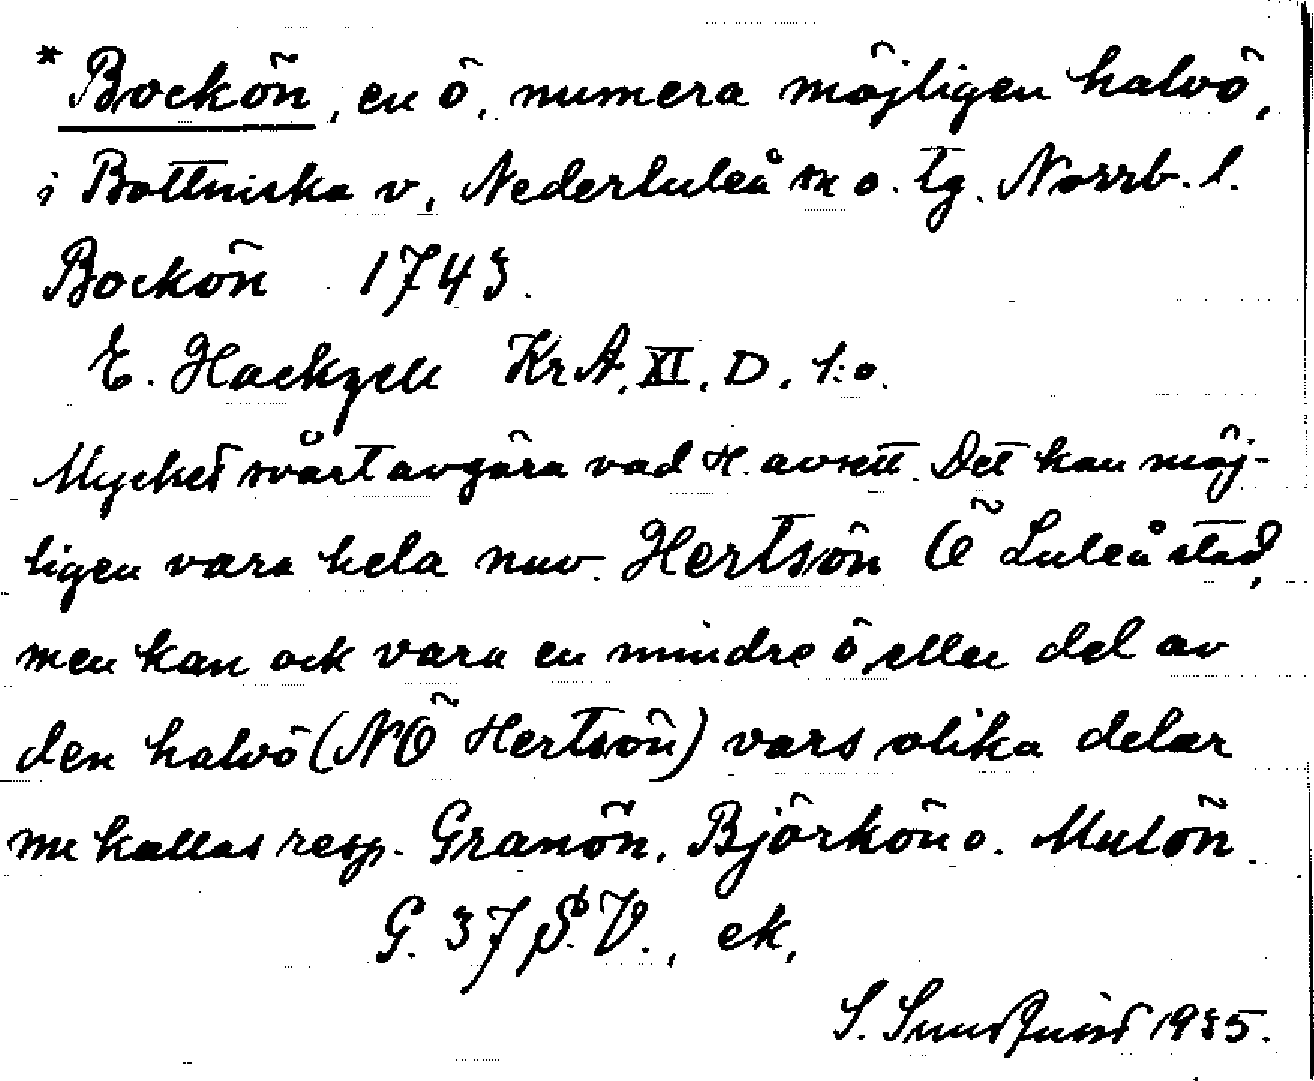 * Bockön, en ö, numera möjligen halvö,
i Bottniska v, Nederluleå sn o. tg. Norrb. l.
Bockön 1743.
E. Hackzell KrA. XI. D. 1:o.
Mycket svårt avgöra vad H. avsett. Det kan möj-
ligen vara hela nuv. Hertsön Ö Luleå stad,
men kan ock vara en mindre ö eller del av
den halvö (NÖ Hertsön) vars olika delar
nu kallas resp. Granön, Björkön o. Mulön.
G. 37 S.V., ek,
S. Sundqvist 1935.